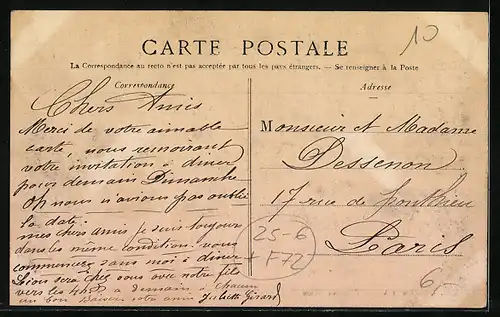 CARTE POSTALE
10
La Correspondance au recto n'est pas acceptée par tous les pays étrangers. — Se renseigner à la Poste
Correspondance
Adresse
Chers Amis
Merci de votre aimable
carte, nous
votre invitation à diner
pour demain Dimanche
Oh nous n'avions pas oublié
la date.
mes chers amis je suis toujours
dans les même condition. vous
commencerez sans moi à diner
chez vous avec notre fils
vers les 4h à demain à chacun
un bon Baiser votre amie Juliette Girard
Monsieur et Madame
Dessenon
17 rue de Ponthieu
Paris
25-6
+ F72
6,-